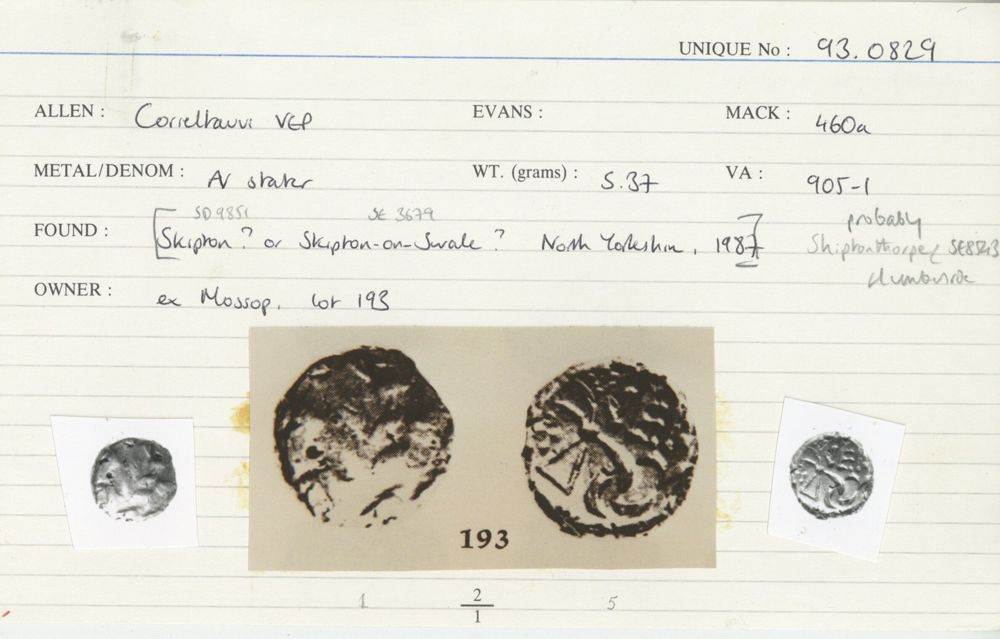 UNIQUE No : 93.0829
ALLEN : Corieltauvi VEP EVANS : MACK : 460a
METAL/DENOM : AV stater WT. (grams) : 5.37 VA : 905-1
SD 9851 SE 3679
FOUND : [Skipton? or Skipton-on-Swale? North Yorkshire, 1987] probably
Shiptonthorpe, SE8543
Humberside
OWNER : ex Mossop, lot 193
193
1 2/1 5